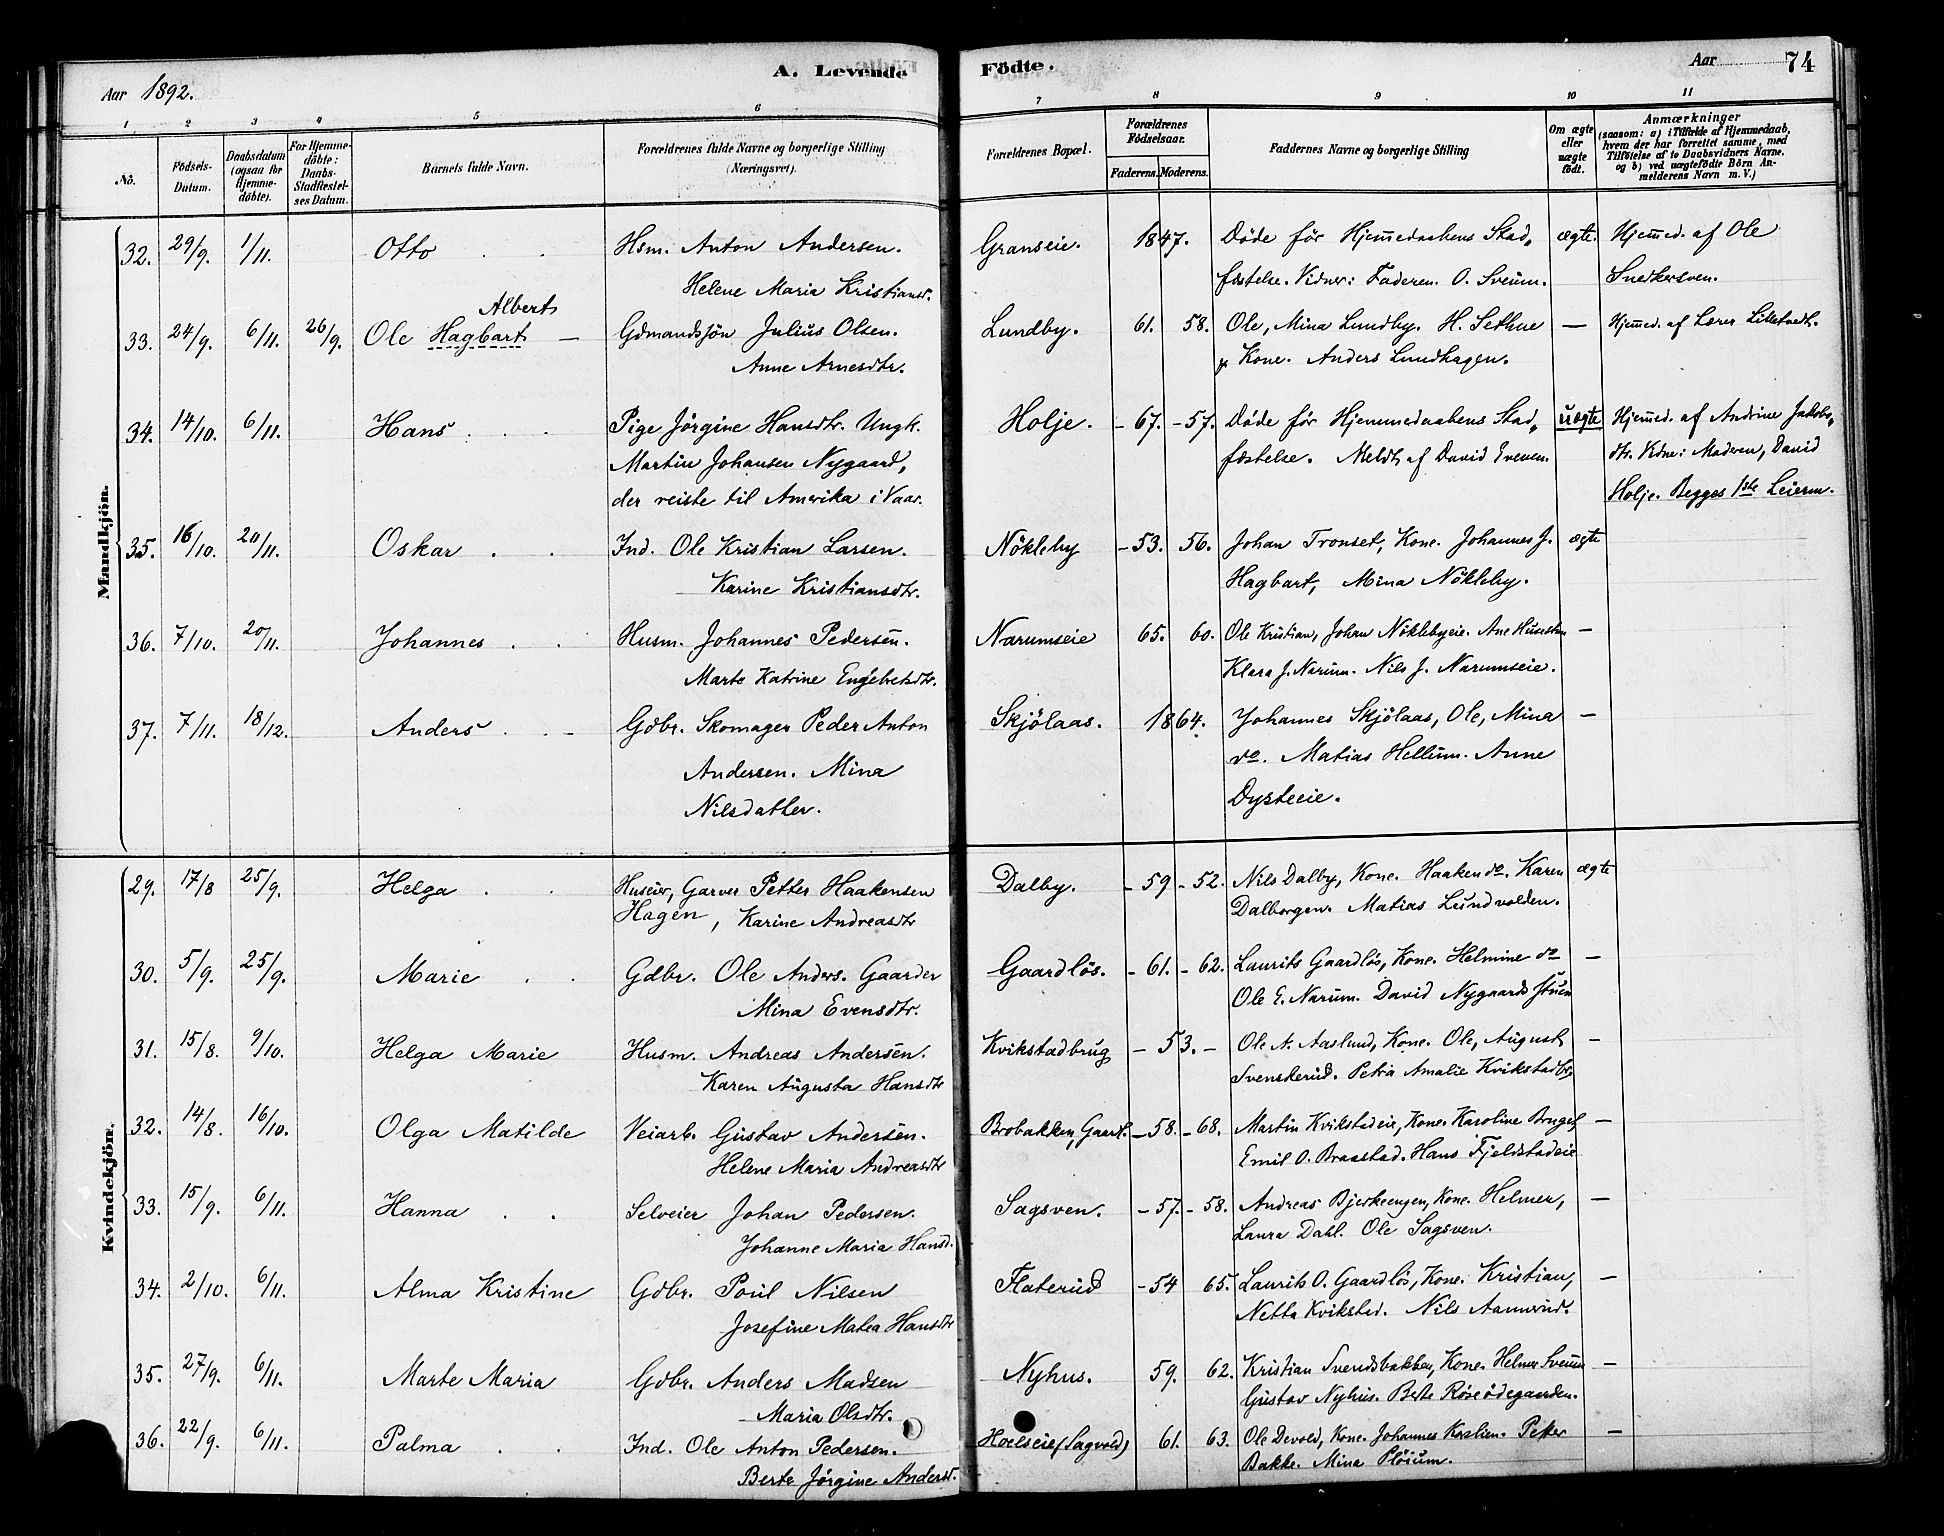 Aar 1892.
A. Levende
Födte.
Aar
74
1 2 3 4 5 6 7 8 9 10 11
No.
Födsels-
Datum.
Daabsdatum
(ogsaa for
Hjemme-
döbte).
For Hjemme-
döbte:
Daabs-
Stadfæstel-
ses Datum.
Barnets fulde Navn.
Forældrenes fulde Navne og borgerlige Stilling
(Næringsvei).
Forældrenes Bopæl.
Forældrenes
Födselsaar.
Faderens. Moderens.
Faddernes Navne og borgerlige Stilling
Om ægte
eller
uægte
födt.
Anmærkninger
(saasom: a) i Tilfælde af Hjemmedaab,
hvem der har forrettet samme, med
Tilföielse af to Daabsvidners Navne,
og b) ved uægtefödte Börn An-
melderens Navn m. V.)
Mandkjön.
32. 29/9. 1/11. Otto Hsm. Anton Andersen. Granseie. 1847. Døde før Hjemmedaabens Stad, ægte. Hjemed. af Ole
Helene Maria Kristiansd. fæstelse. Vidner: Faderen. O. Sveum. Snedkersven.
Albert
33. 24/9. 6/11. 26/9. Ole Hagbart — Gdmandssön Julius Olsen. Lundby. 61. 58. Ole, Mina Lundby. H. Sethue — Hjemed. af Lærer Lilletvedt.
Anne Arnesdtr. & Kone. Anders Lundhagen.
34. 14/10. 6/11. Hans Pige Jörgine Hansdtr. Ungk. Holje. - 67. - 57. Døde før Hjemmedaabens Stad, uægte Hjemed. af Andrine Jakobs-
Martin Johansen Nygaard, fæstelse. Meldt af David Evensen. dtr. Vidne: Moderen, David
der reiste til Amerika i Vaar. Holje. Begges 1ste Leierm.
35. 16/10. 20/11. Oskar Ind. Ole Kristian Larsen. Nökleby - 53. 56. Johan Tronset, Kone. Johannes J. ægte
Karine Kristiansdtr. Hagbart, Mina Nökleby.
36. 7/10. 20/11. Johannes Husm. Johannes Pedersen. Narumseie 65. 60. Ole Kristian, Johan Nöklebyeie. Ane Huusstuen —
Marte Katrine Engebretsdtr. Klara J. Narum. Nils J. Narumseie.
37. 7/11. 18/12. Anders Gdbr. Skomager Peder Anton Skjölaas. 1864. Johannes Skjölaas, Ole, Mina —
Andersen. Mina do. Matias Hellum. Anne
Nilsdatter. Dysteeie.
Kvindekjön.
29. 17/8 25/9. Helga Huseier, Garver Petter Haakensen Dalby. - 59 - 52. Nils Dalby, Kone. Haaken do. Karen ægte
Hagen, Karine Andreasdtr Dalborgen. Matias Lundvolden.
30. 5/9. 25/9. Marie Gdbr. Ole Anders. Gaarder Gaardlös. - 61. - 62. Laurits Gaardlös, Kone. Helmine do —
Mina Evensdtr. Ole E. Narum. David Nygaardsstuen
31. 15/8. 9/10. Helga Marie Husm. Andreas Andersen. Kvikstadbrug - 53. - Ole N. Aaslund, Kone. Ole, August —
Karen Augusta Hansdtr Svenskerud. Petra Amalie Kvikstadbr.
32. 14/8. 16/10. Olga Matilde Veiarb. Gustav Andersen. Brobakken, Gaarl. - 58. - 68. Martin Kvikstadeie, Kone. Karoline Bruget, —
Helene Maria Andreasdtr Emil O. Braastad. Hans Fjeldstadeie
33. 15/9. 6/11. Hanna Selveier Johan Pedersen. Sagsven. - 57. - 58. Andreas Bjerkeengen, Kone. Helmer, —
Johanne Maria Hansd. Laura Dahl. Ole Sagsven.
34. 2/10. 6/11. Alma Kristine Gdbr. Poul Nilsen Flaterud - 54 65. Laurits O. Gaardlös, Kone. Kristian, —
Josefine Matea Hansdtr Netta Kvikstad. Nils Aamerud.
35. 27/9. 6/11. Marte Maria Gdbr. Anders Madsen Nyhus. 59. 62. Kristian Svendsbakken, Kone. Helmer Sveum —
Maria Olsdtr. Gustav Nyhus. Berte Röseödegaarden.
36. 22/9. 6/11. Palma Ind. Ole Anton Pedersen. Hoelseie (Sagvold) 61. 63. Ole Devold, Kone. Johannes Koslien. Petter —
Berte Jörgine Andersd. Bakke. Mina Plörum.